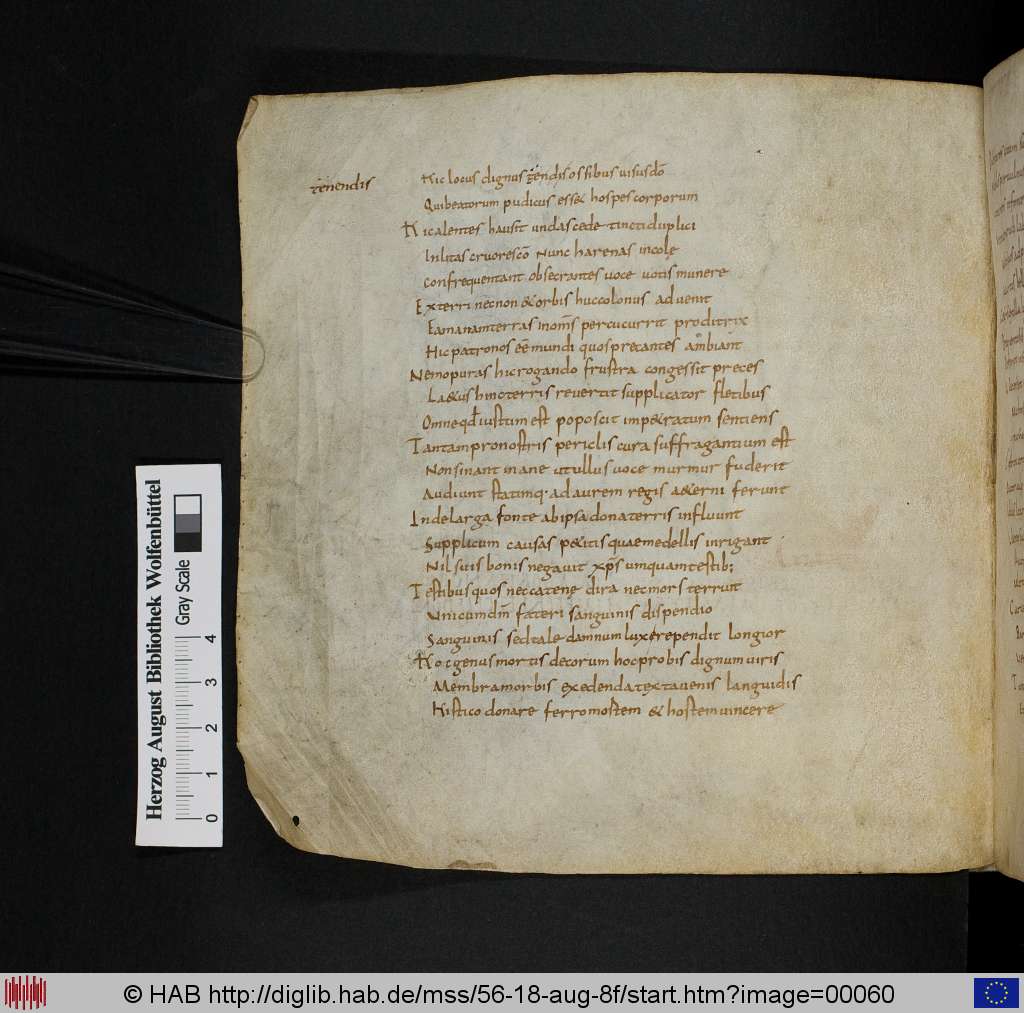 tenendis
Hic locus dignus tenendis ossibus uisus dō
Quibeatorum pudicus ess& hospes corporum
Hicalentes hausit undas cede tincti duplici
Inlitas cruorescō nunc harenas incolę
Confrequentant obsecrantes uoce uotis munere
Exterri necnon & orbis huccolonus aduenit
Famanamterras inom̄s percucurrit proditrix
Hicpatronos eē mundi quosprecantes ambiant
Nemopuras hicrogando frustra congessit preces
La&us hincterris reuertit supplicator fletibus
Omneqđ iustum est poposcit imp&ratum sentiens
Tantampronostris periclis cura suffragantium est
Nonsinant inane utullus uoce murmur fuderit
Audiunt statimq· adaurem regis a&erni ferunt
Indelarga fonte abipsa dona terris influunt
Supplicum causas p&itis quaemedellis inrigant
Nilsuis bonis negauit xp̄s umquam testib;
Testibus quos neccatenę dira necmors terruit
Unicumdm̄ fateri sanguinis dispendio
Sanguinis sedtale damnum lux&rependit longior
Hocgenus mortis decorum hocprobis dignum uiris
Membramorbis exedenda textauenis languidis
Histico donare ferromostem & hostemuincere
Herzog August Bibliothek Wolfenbüttel
Gray Scale
0 1 2 3 4
© HAB http://diglib.hab.de/mss/56-18-aug-8f/start.htm?image=00060